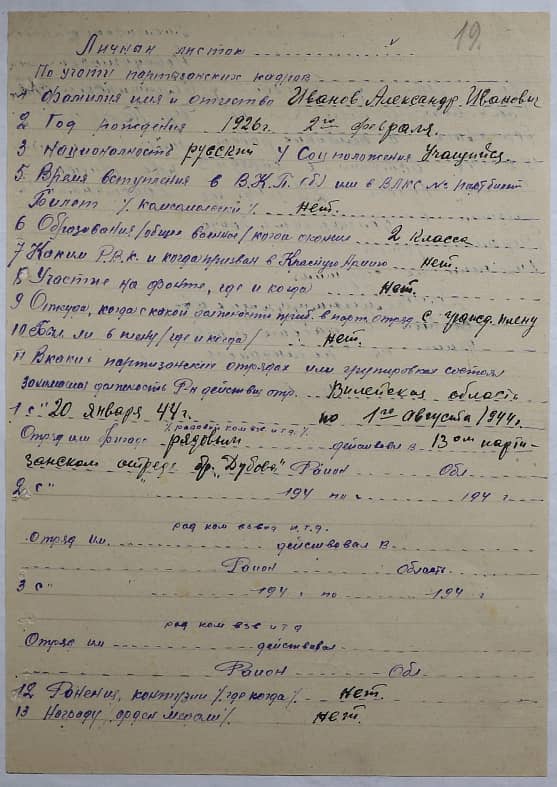 19.
Личная листок
По учоти партизонских кадров
Фамилия имя и отчество Иванов Александр Иванович
2 Год рождения 1926г. 2го февраля.
3 Националность русский 4 Соц положения Учащийся.
5 Время вступления в В.К.П.(б) или в ВЛКС № партбилет
Билет % комсомолский % нет.
6 Образования/общие военное/когда окончил 2 класса
7 Каким Р.В.К. и когда призван в Красную Армию нет.
8 Участие на фронте, где и когда нет.
9 Откуда, когда с какой должности приб. в парт. отряд с гражд. плену
10 Был ли в плену/где и когда/ нет.
11 В каких партизанских отрядах или групировках состоял
занимаемая должность Р-н действия отр. Вилейская область
1 с "20 января 44г. по 1го августа 1944г.
% рядовой ком взв и т.д. %
Отряд им рядовым действовал в 13ом парти-
занском отряде бр. "Дубова" Район Обл
2 с " 194 по г. 194 г
ряд ком взвод и.т.д.
Отряд им. действовал в.
Район Область.
3 с" 194 г по 194 г
ряд ком взв и т д
Отряд им действовал
Район Обл.
12 Ранения, контузии % где когда % нет.
13 Награды орден медали % нет.